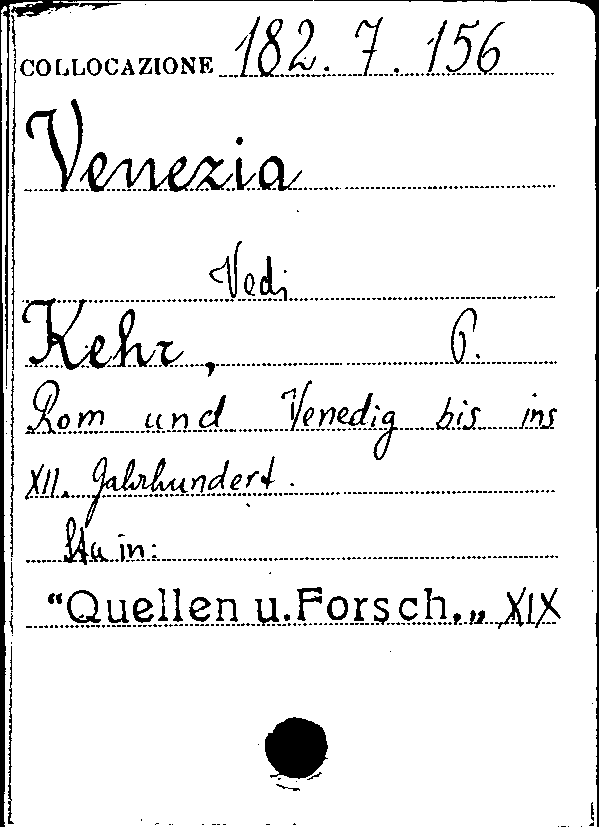 COLLOCAZIONE 182.7.156
Venezia
Vedi
Kehr, P.
Rom und Venedig bis ins
XII. Jahrhundert.
Sta in:
"Quellen u. Forsch.„ XIX